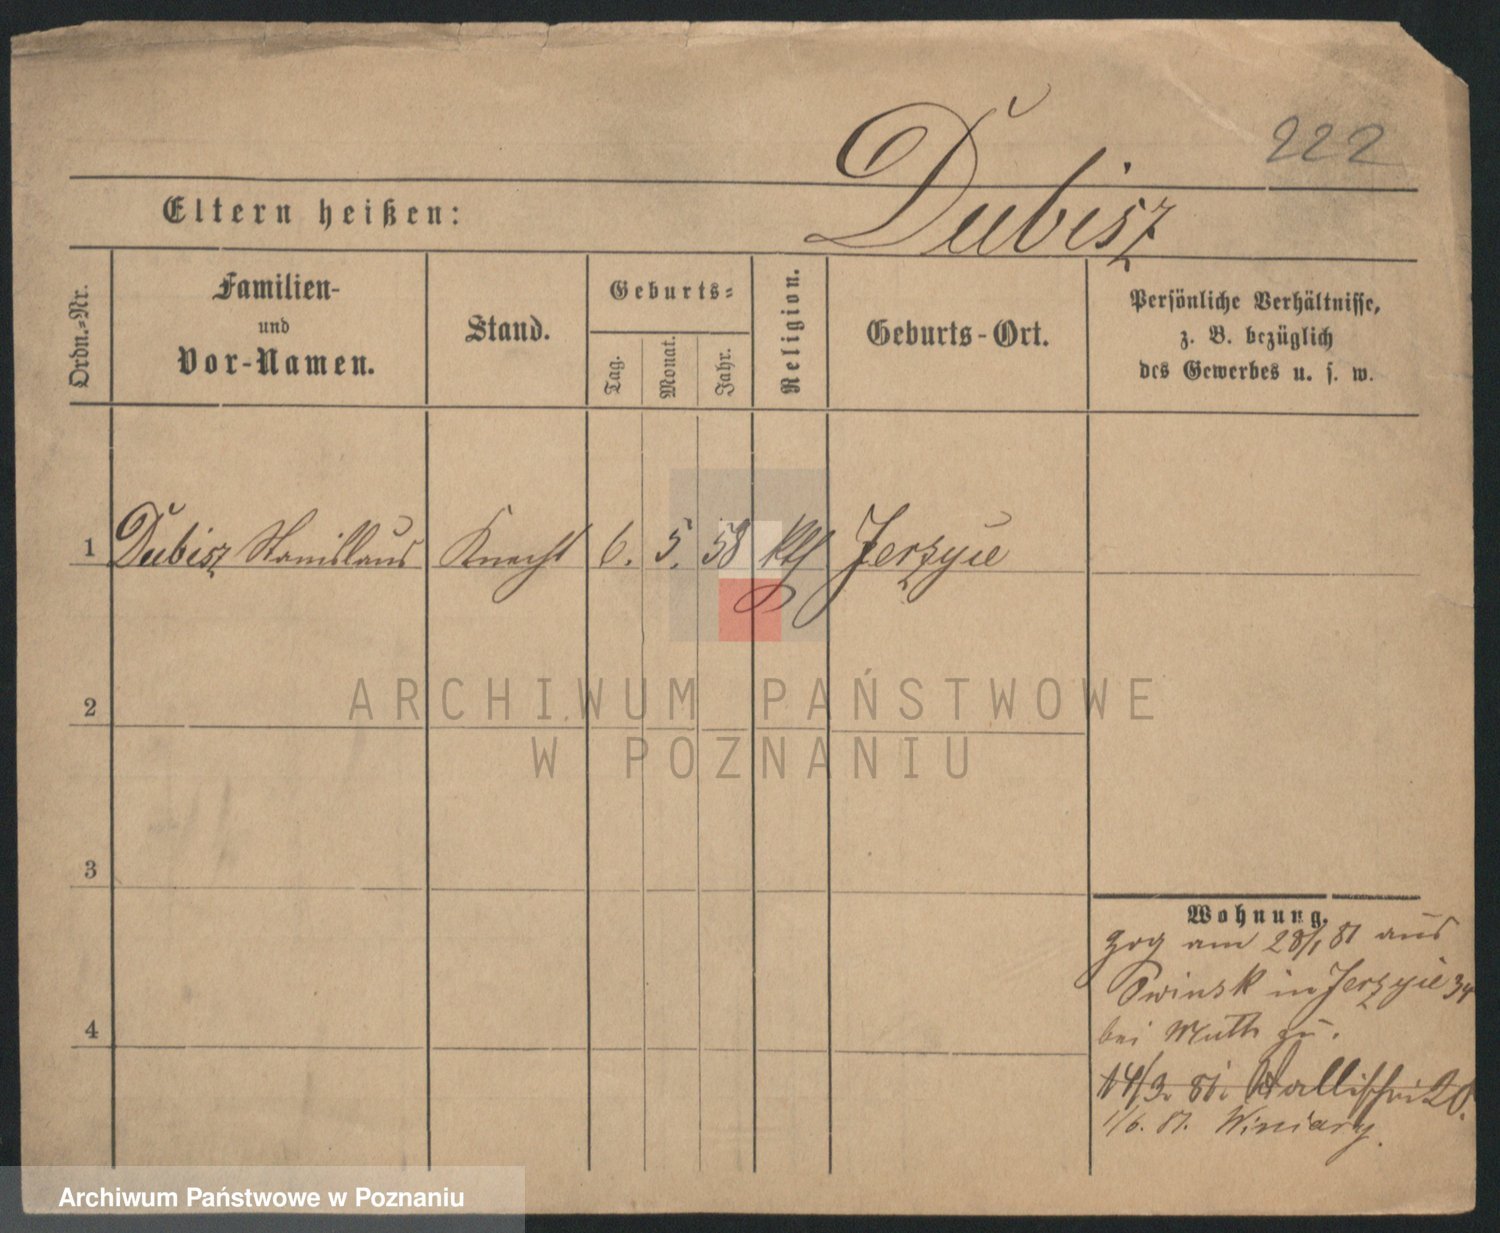 222
Dubisz
Eltern heißen:
Ordn.=Nr.
Familien-
und
Vor-Namen.
Stand.
Geburts=
Tag.
Monat.
Jahr.
Religion.
Geburts-Ort.
Persönliche Verhältnisse,
z. B. bezüglich
des Gewerbes u. s. w.
1 Dubisz Stanislaus Knecht 6. 5. 58 kth Jerzyce
2
3
4
ARCHIWUM PAŃSTWOWE
W POZNANIU
Wohnung.
zog am 28/1 81 aus
in Jerzyce 34
bei Muth zu.
14/3. 81. Wallischei 20.
1/6. 81. Winiary.
Archiwum Państwowe w Poznaniu